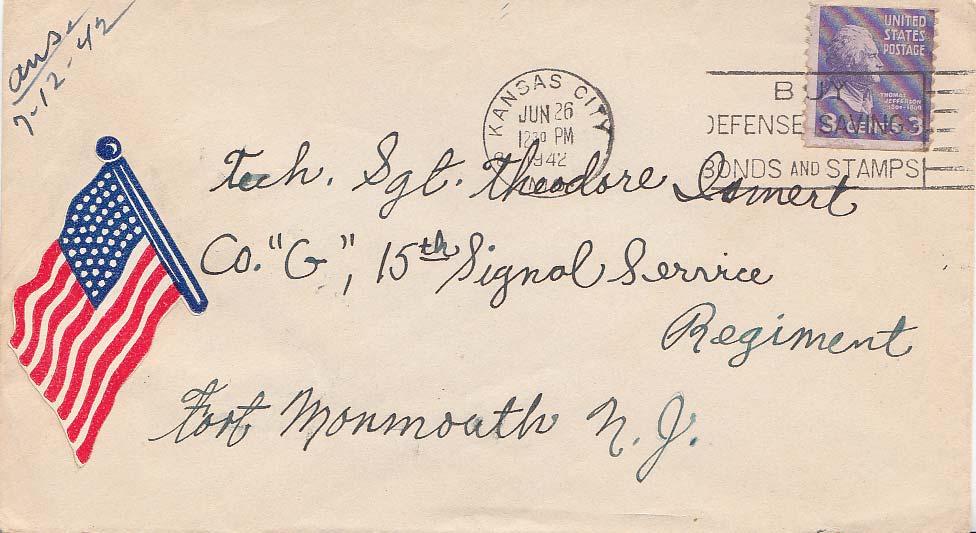 ans.
7-12-42
UNITED
STATES
POSTAGE
THOMAS
JEFFERSON
3 CENTS 3
KANSAS CITY
JUN 26
12 30 PM
1942
BUY
DEFENSE SAVINGS
BONDS AND STAMPS
Tech. Sgt. Theodore Ismert
Co. "G", 15th Signal Service
Regiment
Fort Monmouth N. J.